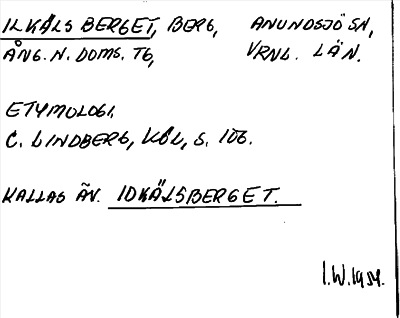 ILKÅLSBERGET, BERG, ANUNDSJÖ SN,
ÅNG. N. DOMS. TG, VRNL. LÄN.
ETYMOLOGI,
C. LINDBERG, KÖL, S. 106.
KALLAS ÄV. IDKÅLSBERGET.
I.W. 1954.